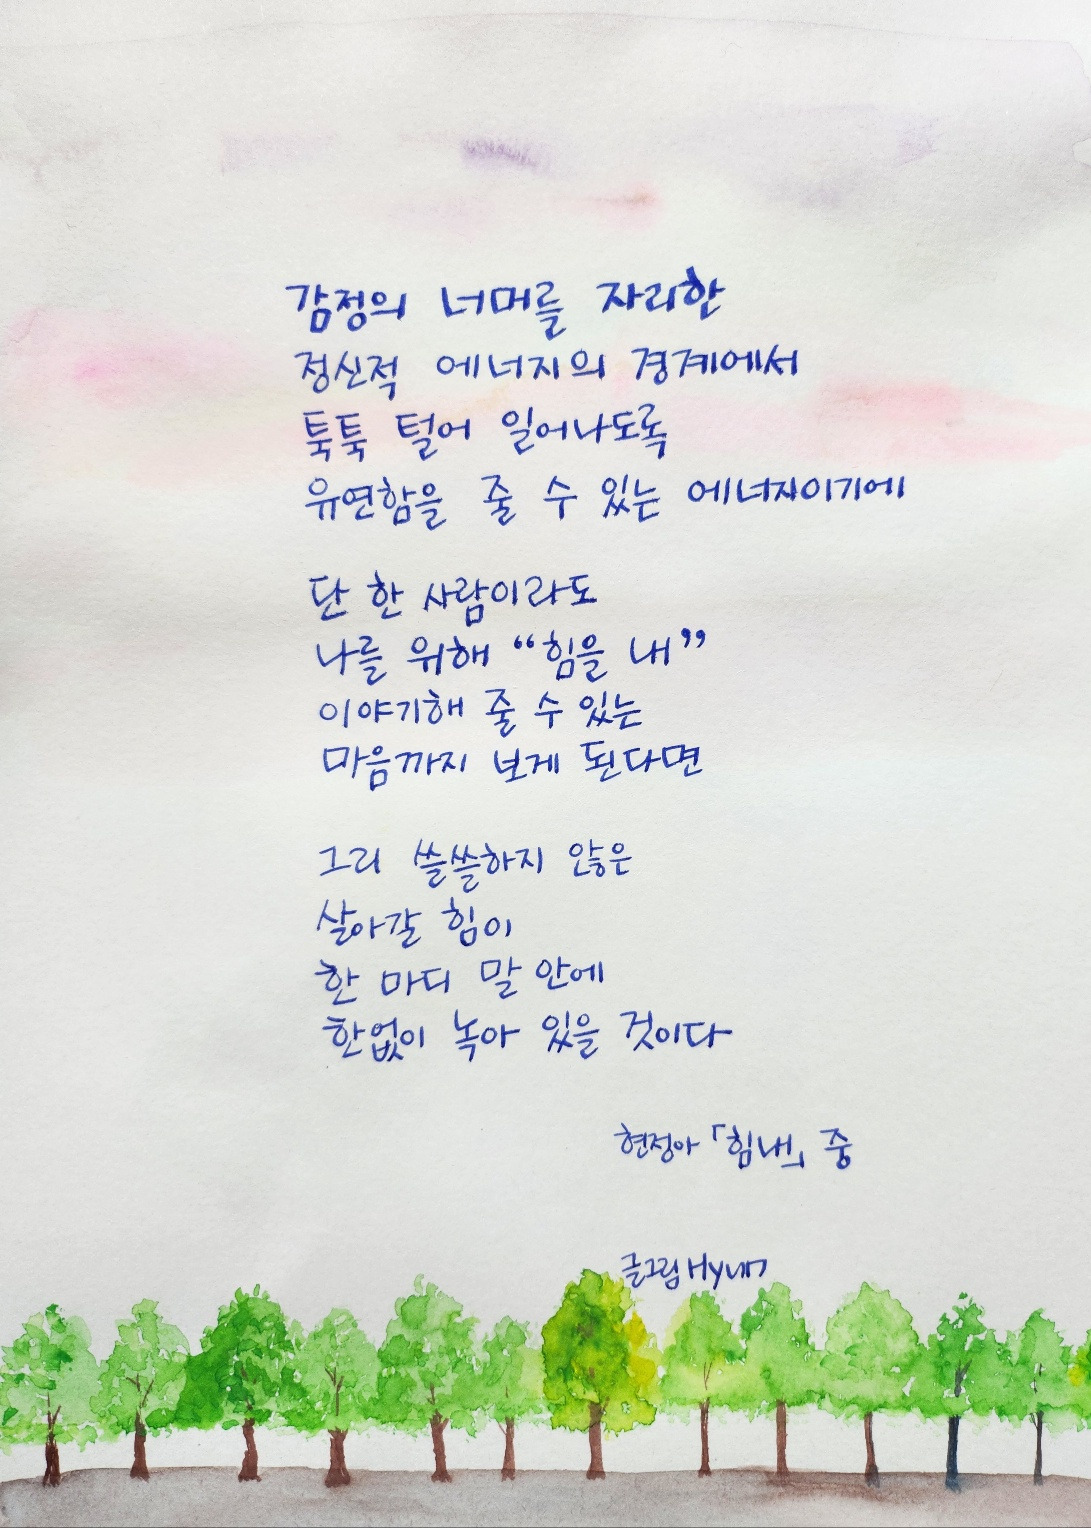 감정의 너머를 자리한
정신적 에너지의 경계에서
툭툭 털어 일어나도록
유연함을 줄 수 있는 에너지이기에
단 한 사람이라도
나를 위해 “힘을 내”
이야기해 줄 수 있는
마음까지 보게 된다면
그리 쓸쓸하지 않은
살아갈 힘이
한 마디 말 안에
한없이 녹아 있을 것이다
현정아 「힘내」 중
글그림 Hyun